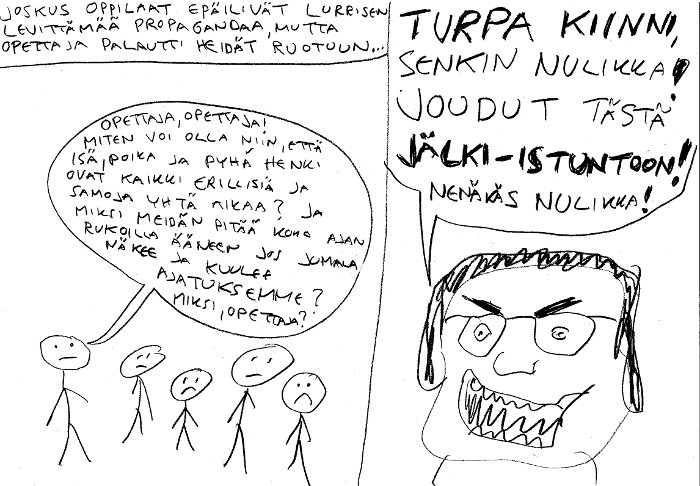 JOSKUS OPPILAAT EPÄILIVÄT LURRISEN
LEVITTÄMÄÄ PROPAGANDAA, MUTTA
OPETTAJA PALAUTTI HEIDÄT RUOTUUN...
OPETTAJA, OPETTAJA!
MITEN VOI OLLA NIIN, ETTÄ
ISÄ, POIKA JA PYHÄ HENKI
OVAT KAIKKI ERILLISIÄ JA
SAMOJA YHTÄ AIKAA? JA
MIKSI MEIDÄN PITÄÄ KOKO AJAN
RUKOILLA ÄÄNEEN JOS JUMALA
NÄKEE JA KUULEE
AJATUKSEMME?
MIKSI, OPETTAJA?
TURPA KIINNI,
SENKIN NULIKKA!
JOUDUT TÄSTÄ
JÄLKI-ISTUNTOON!
NENÄKÄS NULIKKA!